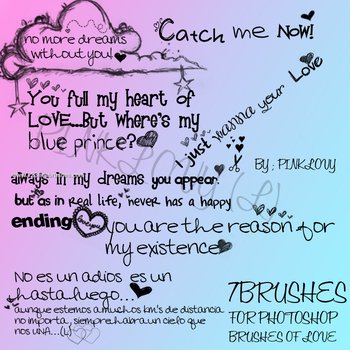 no more dreams
without you!
Catch me Now!
You full my heart of
LOVE...But where's my
blue prince?
I just wanna your Love
BY ; PINKLOVY
always in my dreams you appear.
but as in real life, never has a happy
ending
you are the reason for
my existence
No es un adios es un
hasta luego...
aunque estemos a muchos km's de distancia
no importa, siempre habra un cielo que
nos UNA...(L)
7BRUSHES
FOR PHOTOSHOP
BRUSHES OF LOVE
PINKLOVY (L)